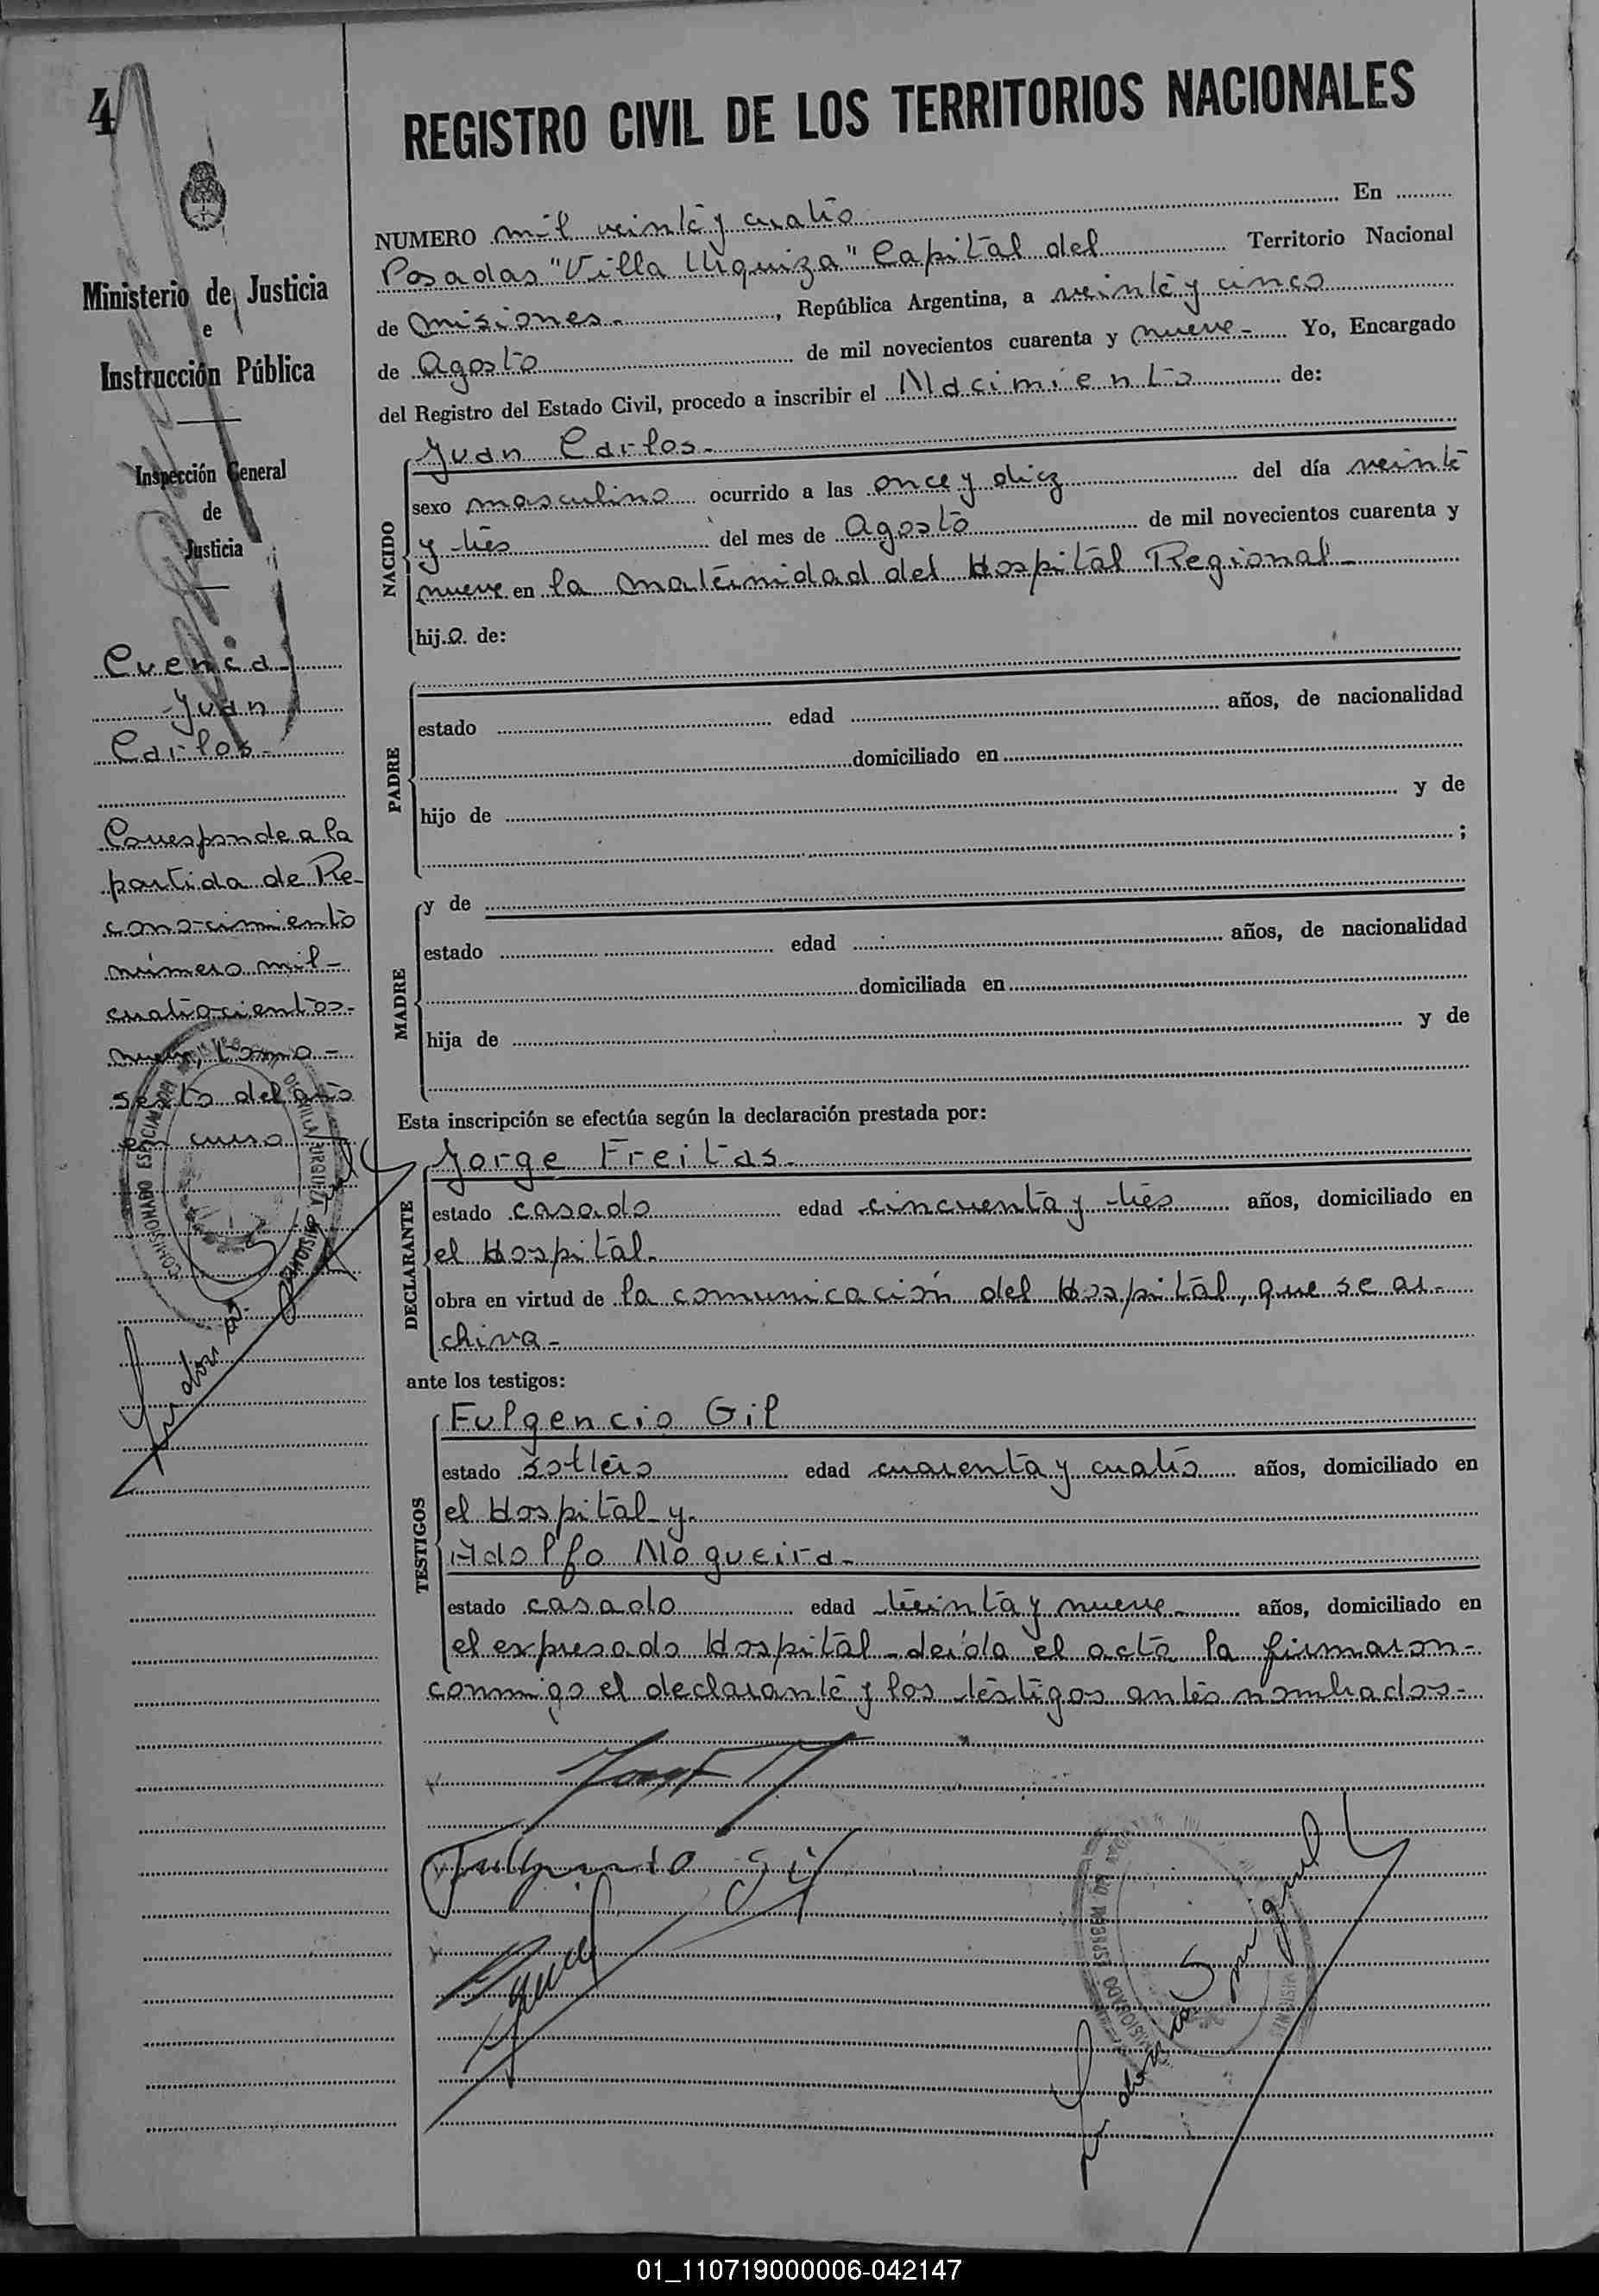 4
REGISTRO CIVIL DE LOS TERRITORIOS NACIONALES
Ministerio de Justicia
e
Instrucción Pública
Inspección General
de
Justicia
Cuenca
Juan
Carlos-
Corresponde a la
partida de Re-
conocimiento
número mil-
cuatrocientos-
nueve, tomo-
sexto del año
en curso
COMISIONADO ESPECIAL
VILLA URQUIZA MISIONES
NUMERO mil veinte y cuatro En
Posadas "Villa Urquiza" Capital del Territorio Nacional
de Misiones-, República Argentina, a veinte y cinco
de Agosto de mil novecientos cuarenta y nueve- Yo, Encargado
del Registro del Estado Civil, procedo a inscribir el Nacimiento de:
NACIDO
Juan Carlos-
sexo masculino ocurrido a las once y diez del día veinte
y tres del mes de Agosto de mil novecientos cuarenta y
nueve en la Maternidad del Hospital Regional-
hijo de:
PADRE
estado edad años, de nacionalidad
domiciliado en
hijo de y de
;
MADRE
y de
estado edad años, de nacionalidad
domiciliada en
hija de y de
Esta inscripción se efectúa según la declaración prestada por:
DECLARANTE
Jorge Freitas-
estado casado edad cincuenta y tres años, domiciliado en
el Hospital-
obra en virtud de la comunicación del Hospital, que se ar-
chiva-
ante los testigos:
TESTIGOS
Fulgencio Gil
estado soltero edad cuarenta y cuatro años, domiciliado en
el Hospital y-
Adolfo Nogueira-
estado casado edad treinta y nueve- años, domiciliado en
el expresado Hospital-Leída el acta la firmaron-
conmigo el declarante y los testigos antes nombrados-
Fulgencio Gil
01_110719000006-042147